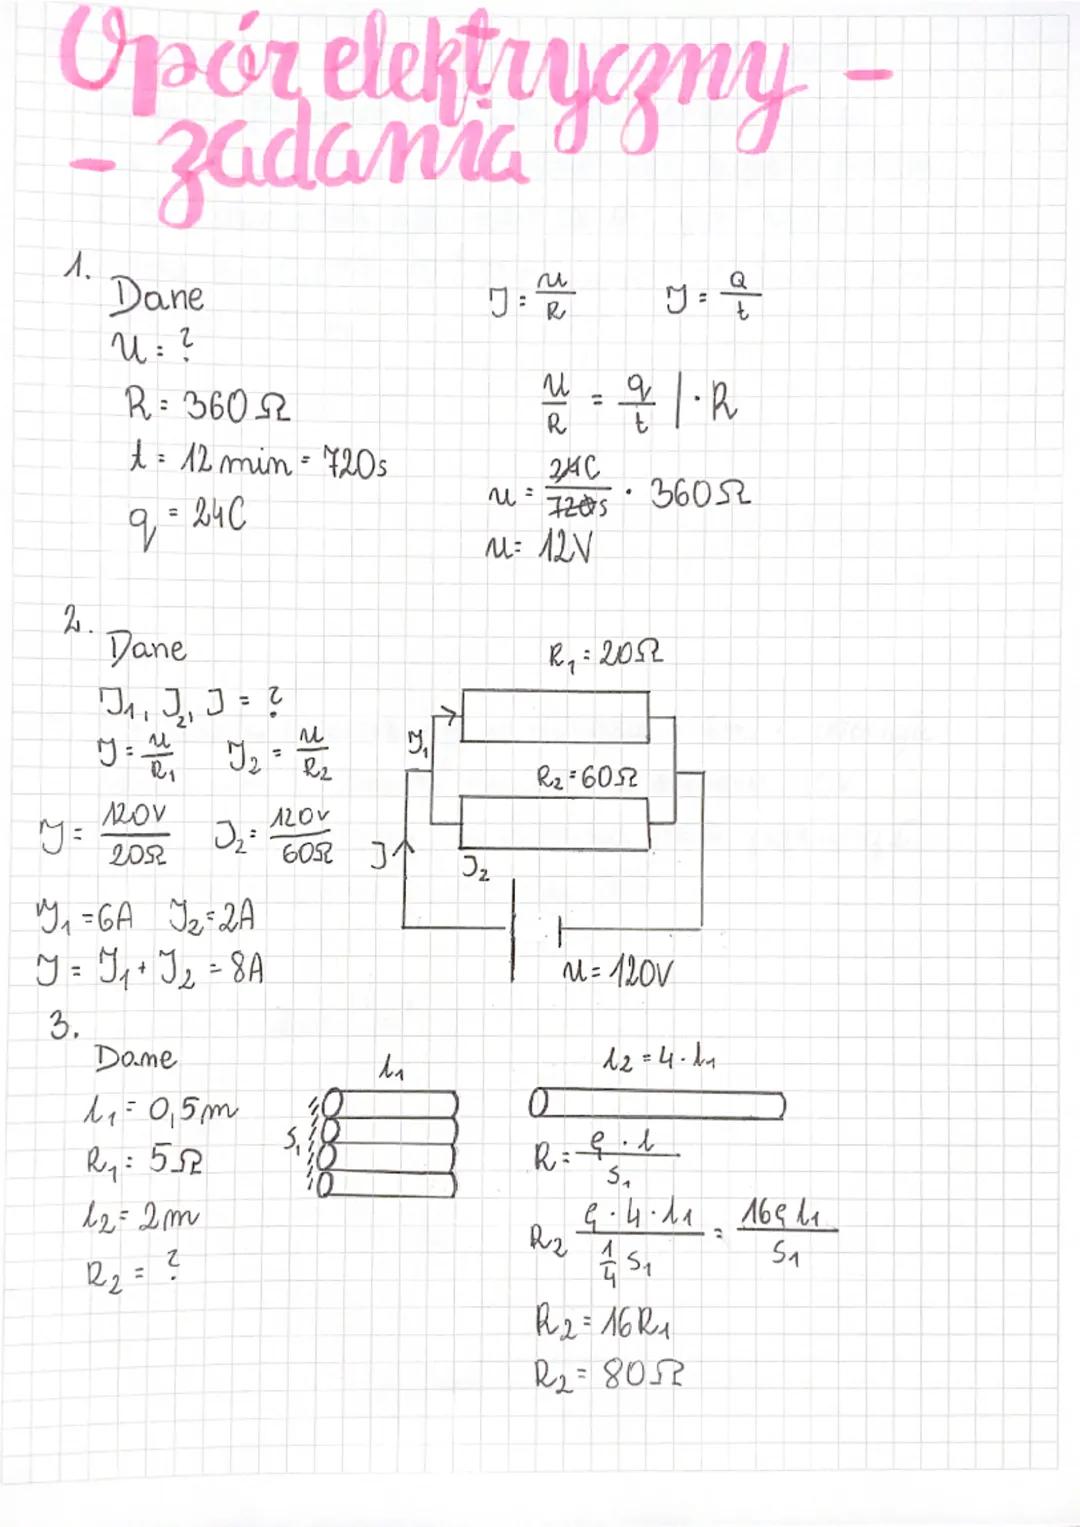 Opór elektryczny -
- zadania
1.
Dane
U = ?
R = 360 Ω
t = 12 min = 720s
q = 24C
J = U/R J = Q/t
U/R = q/t | · R
U = 24C/720s · 360Ω
U = 12V
2.
Dane
J₁, J₂, J = ?
J = U/R₁ J₂ = U/R₂
J = 120V/20Ω J₂ = 120V/60Ω
J₁ = 6A J₂ = 2A
J = J₁ + J₂ = 8A
R₁ = 20Ω
J₁
R₂ = 60Ω
J
J₂
U = 120V
3.
Dane
l₁ = 0,5m
R₁ = 5Ω
l₂ = 2m
R₂ = ?
l₁
S₁
l₂ = 4 · l₁
R = ρ · l/S₁
R₂ ρ · 4 · l₁/¼ S₁ = 16ρ l₁/S₁
R₂ = 16R₁
R₂ = 80Ω